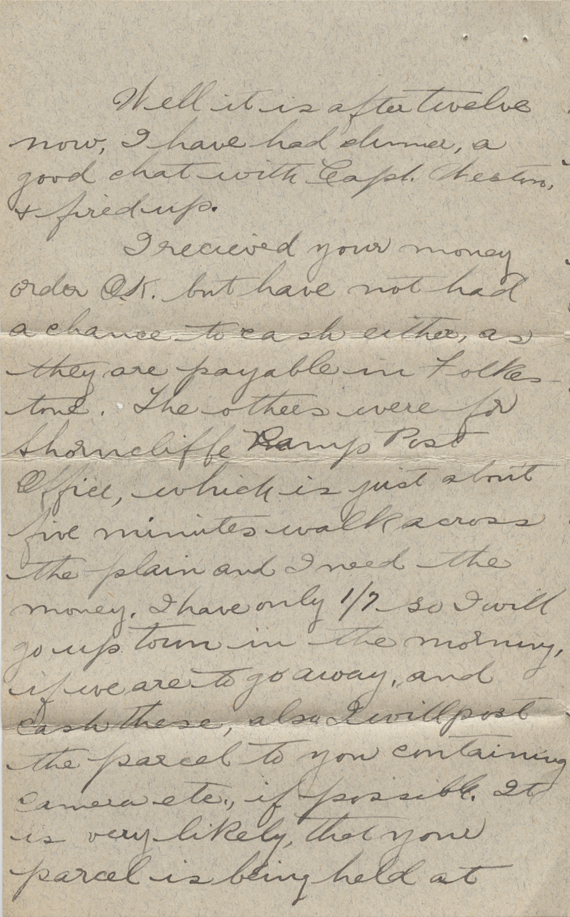 Well it is after twelve
now, I have had dinner, a
good chat with Capt. Weston,
& fired up.
I recieved your money
order O.K. but have not had
a chance to cash either, as
they are payable in Folkes-
tone. The others were for
Shorncliffe Camp Post
Office, which is just about
five minutes walk across
the plain and I need the
money. I have only 1/7 so I will
go up town in the morning,
if we are to go away, and
cash these, also I will post
the parcel to you containing
camera etc., if possible. It
is very likely, that your
parcel is being held at